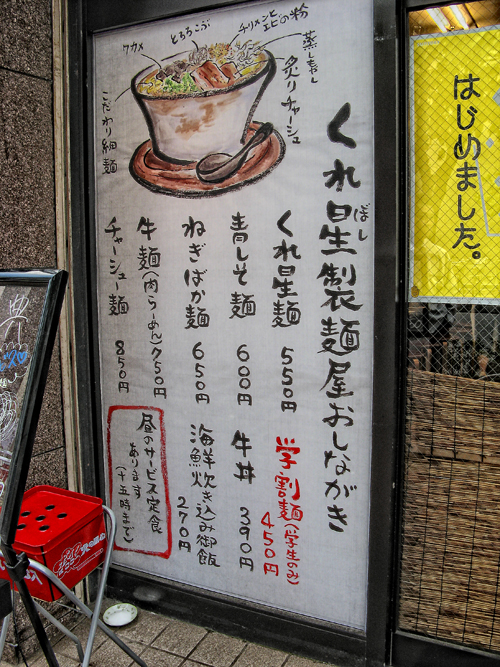 くれ星製麺屋おしながき
ぼし
ワカメ
とろろこぶ
チリメンと
エビの粉
蒸しもやし
炙りチャーシュ
こだわり細麺
くれ星麺 550円
青しそ麺 600円
ねぎばか麺 650円
牛麺(肉らーめん)750円
チャーシュー麺 850円
学割麺(学生のみ)
450円
牛丼 390円
海鮮炊き込み御飯
270円
昼のサービス定食
あります
(十五時まで)
はじめました。